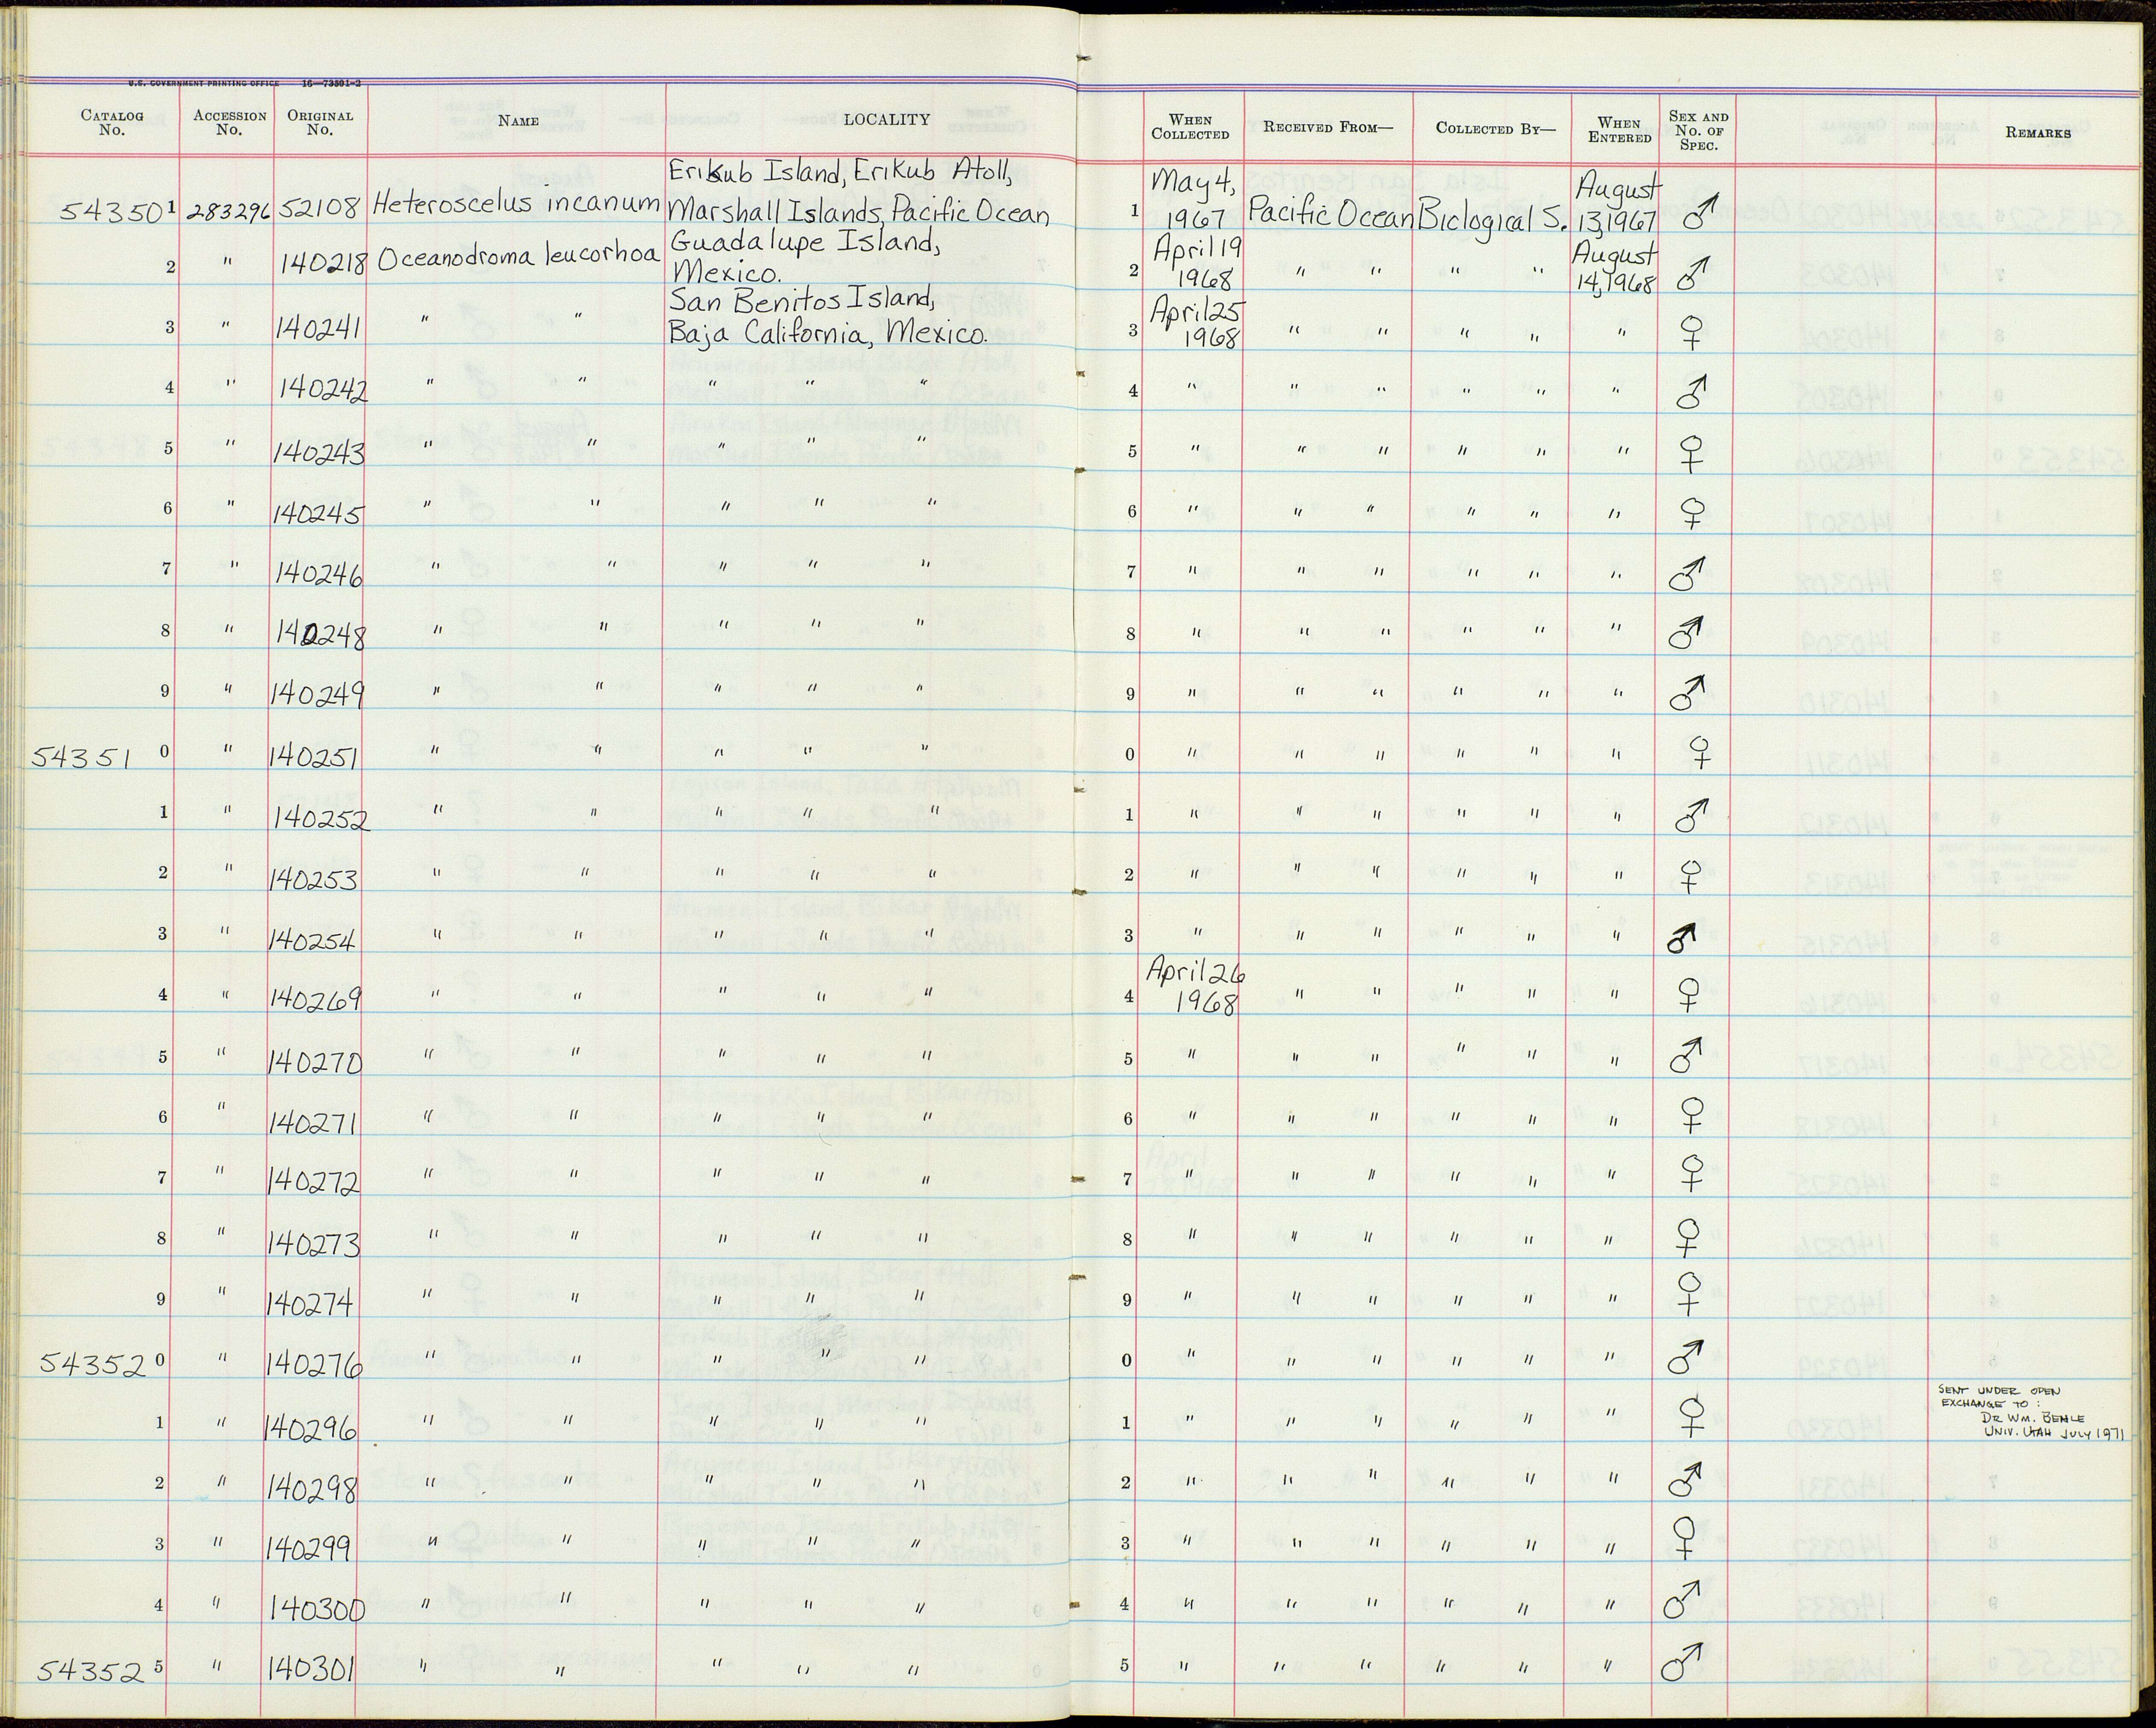 U.S. GOVERNMENT PRINTING OFFICE 16—73591-2
CATALOG No. ACCESSION No. ORIGINAL No. NAME LOCALITY WHEN COLLECTED RECEIVED FROM— COLLECTED BY— WHEN ENTERED SEX AND No. OF SPEC. REMARKS
54350 1 283296 52108 Heteroscelus incanum Erikub Island, Erikub Atoll, Marshall Islands, Pacific Ocean 1 May 4, 1967 Pacific Ocean Biological S. August 13, 1967 ♂
2 " 140218 Oceanodroma leucorhoa Guadalupe Island, Mexico. 2 April 19 1968 " " " " August 14, 1968 ♂
3 " 140241 " " San Benitos Island, Baja California, Mexico. 3 April 25 1968 " " " " " ♀
4 " 140242 " " " " " 4 " " " " " " ♂
5 " 140243 " " " " " 5 " " " " " " ♀
6 " 140245 " " " " " 6 " " " " " " ♀
7 " 140246 " " " " " 7 " " " " " " ♂
8 " 140248 " " " " " 8 " " " " " " ♂
9 " 140249 " " " " " 9 " " " " " " ♂
54351 0 " 140251 " " " " " 0 " " " " " " ♀
1 " 140252 " " " " " 1 " " " " " " ♂
2 " 140253 " " " " " 2 " " " " " " ♀
3 " 140254 " " " " " 3 " " " " " " ♂
4 " 140269 " " " " " 4 April 26 1968 " " " " " ♀
5 " 140270 " " " " " 5 " " " " " " ♂
6 " 140271 " " " " " 6 " " " " " " ♀
7 " 140272 " " " " " 7 " " " " " " ♀
8 " 140273 " " " " " 8 " " " " " " ♀
9 " 140274 " " " " " 9 " " " " " " ♀
54352 0 " 140276 " " " " " 0 " " " " " " ♂
1 " 140296 " " " " " 1 " " " " " " ♀ SENT UNDER OPEN EXCHANGE TO: DR WM. BEHLE UNIV. UTAH JULY 1971
2 " 140298 " " " " " 2 " " " " " " ♂
3 " 140299 " " " " " 3 " " " " " " ♀
4 " 140300 " " " " " 4 " " " " " " ♂
54352 5 " 140301 " " " " " 5 " " " " " " ♂